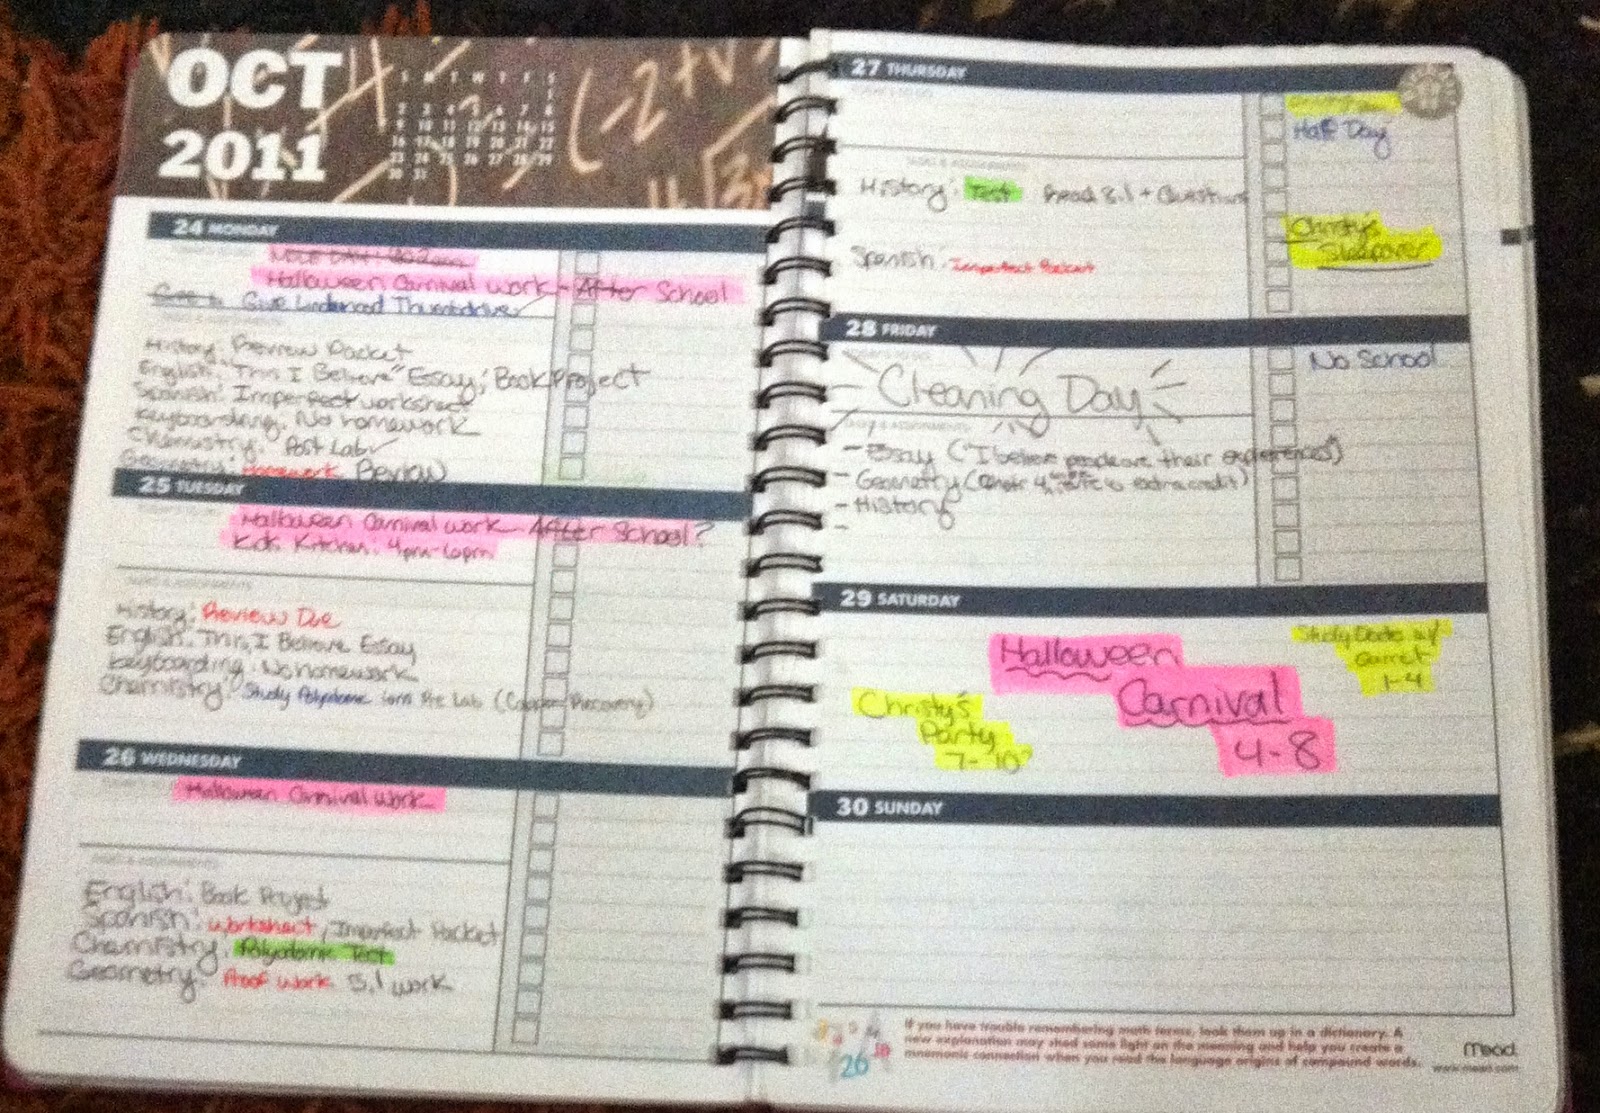 OCT
2011
S M T W T F S
1
2 3 4 5 6 7 8
9 10 11 12 13 14 15
16 17 18 19 20 21 22
23 24 25 26 27 28 29
30 31
24 MONDAY
Halloween Carnival Work - After School
Give Thumbdrive
History: Review Packet
English: "This I Believe" Essay, Book Project
Spanish: Imperfect worksheet
Keyboarding: No homework
Chemistry: Post Lab
Geometry: Homework Review
25 TUESDAY
Halloween Carnival work - After School?
Kitchen: 4pm-6pm
TASKS & ASSIGNMENTS
History: Review Due
English: This I Believe Essay
Keyboarding: No homework
Chemistry: Study Polyatomic Ions Pre Lab (Copper Discovery)
26 WEDNESDAY
Halloween Carnival Work
TASKS & ASSIGNMENTS
English: Book Project
Spanish: Worksheet, Imperfect Packet
Chemistry: Polyatomic Test
Geometry: Proof Work 5.1 work
27 THURSDAY
Half Day
TASKS & ASSIGNMENTS
History: Test Read 8.1 + Questions
Christy's
Sleepover
Spanish: Imperfect Packet
28 FRIDAY
No School
Cleaning Day
TASKS & ASSIGNMENTS
- Essay ("I believe people are their experiences")
- Geometry ( extra credit)
- History
-
29 SATURDAY
Halloween
Carnival
4-8
Study Date w/
Garret
1-4
Christy's
Party
7-10?
30 SUNDAY
26
If you have trouble remembering math terms, look them up in a dictionary. A
new explanation may shed some light on the meaning and help you create a
mnemonic connection when you read the language origins of compound words.
Mead
www.mead.com